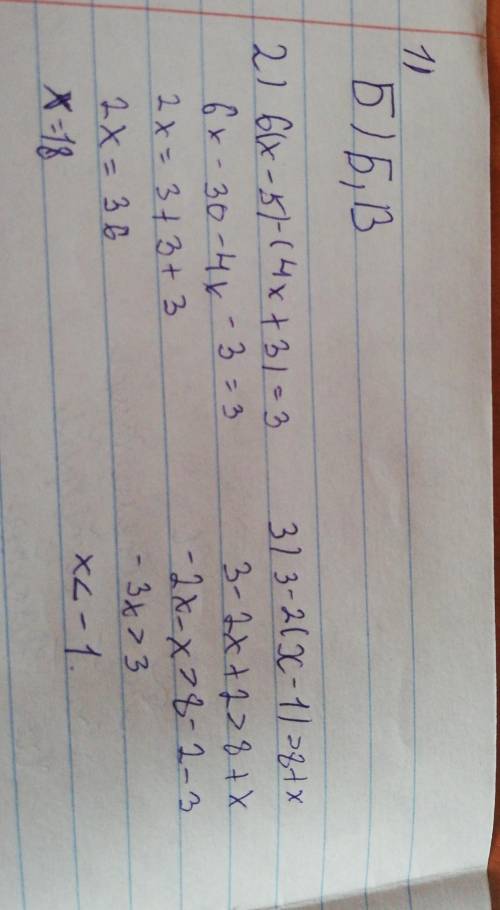 1)
Б) Б, В
2) 6(x - 5) - (4x + 3) = 3
6x - 30 - 4x - 3 = 3
2x = 3 + 3 + 3
2x = 36
x = 18
3) 3 - 2(x - 1) > 8 + x
3 - 2x + 2 > 8 + x
-2x - x > 8 - 2 - 3
-3x > 3
x < -1.